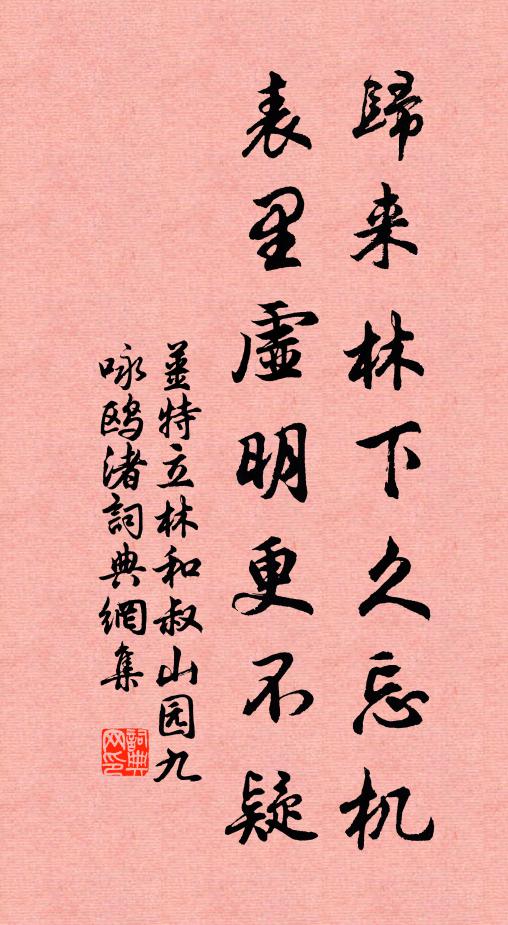 歸来林下久忘机
表里虛明更不疑
姜特立林和叔山园九
咏鸥渚詞典網集
詞典
网印